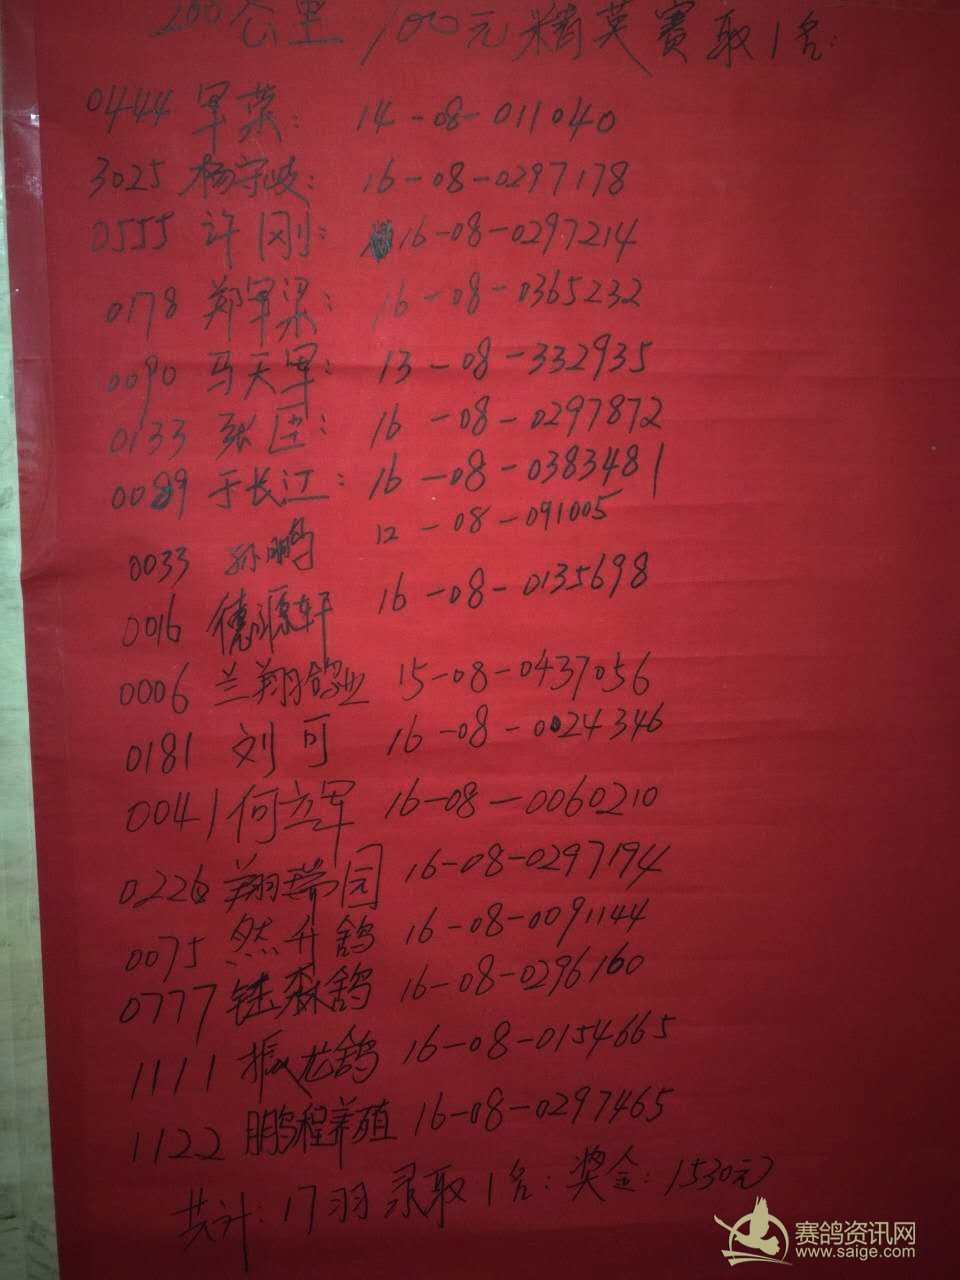 200公里 100元精英赛取1名:
0444 军荣: 14-08-011040
3025 杨守岐: 16-08-0297178
0555 许刚: 16-08-0297214
0178 郑军梁: 16-08-0365232
0090 马天军: 13-08-332935
0133 张臣: 16-08-0297872
0089 于长江: 16-08-0383481
0033 孙鹏 12-08-091005
0016 德源轩 16-08-0135698
0006 兰翔鸽业 15-08-0437056
0181 刘可 16-08-0024346
0041 何立军 16-08-0060210
0226 翔瑞园 16-08-0297194
0075 然升鸽 16-08-0091144
0777 森鸽 16-08-0296160
1111 振龙鸽 16-08-0154665
1122 鹏程养殖 16-08-0297465
共计: 17羽 录取1名: 奖金: 1530元
赛鸽资讯网
www.saige.com